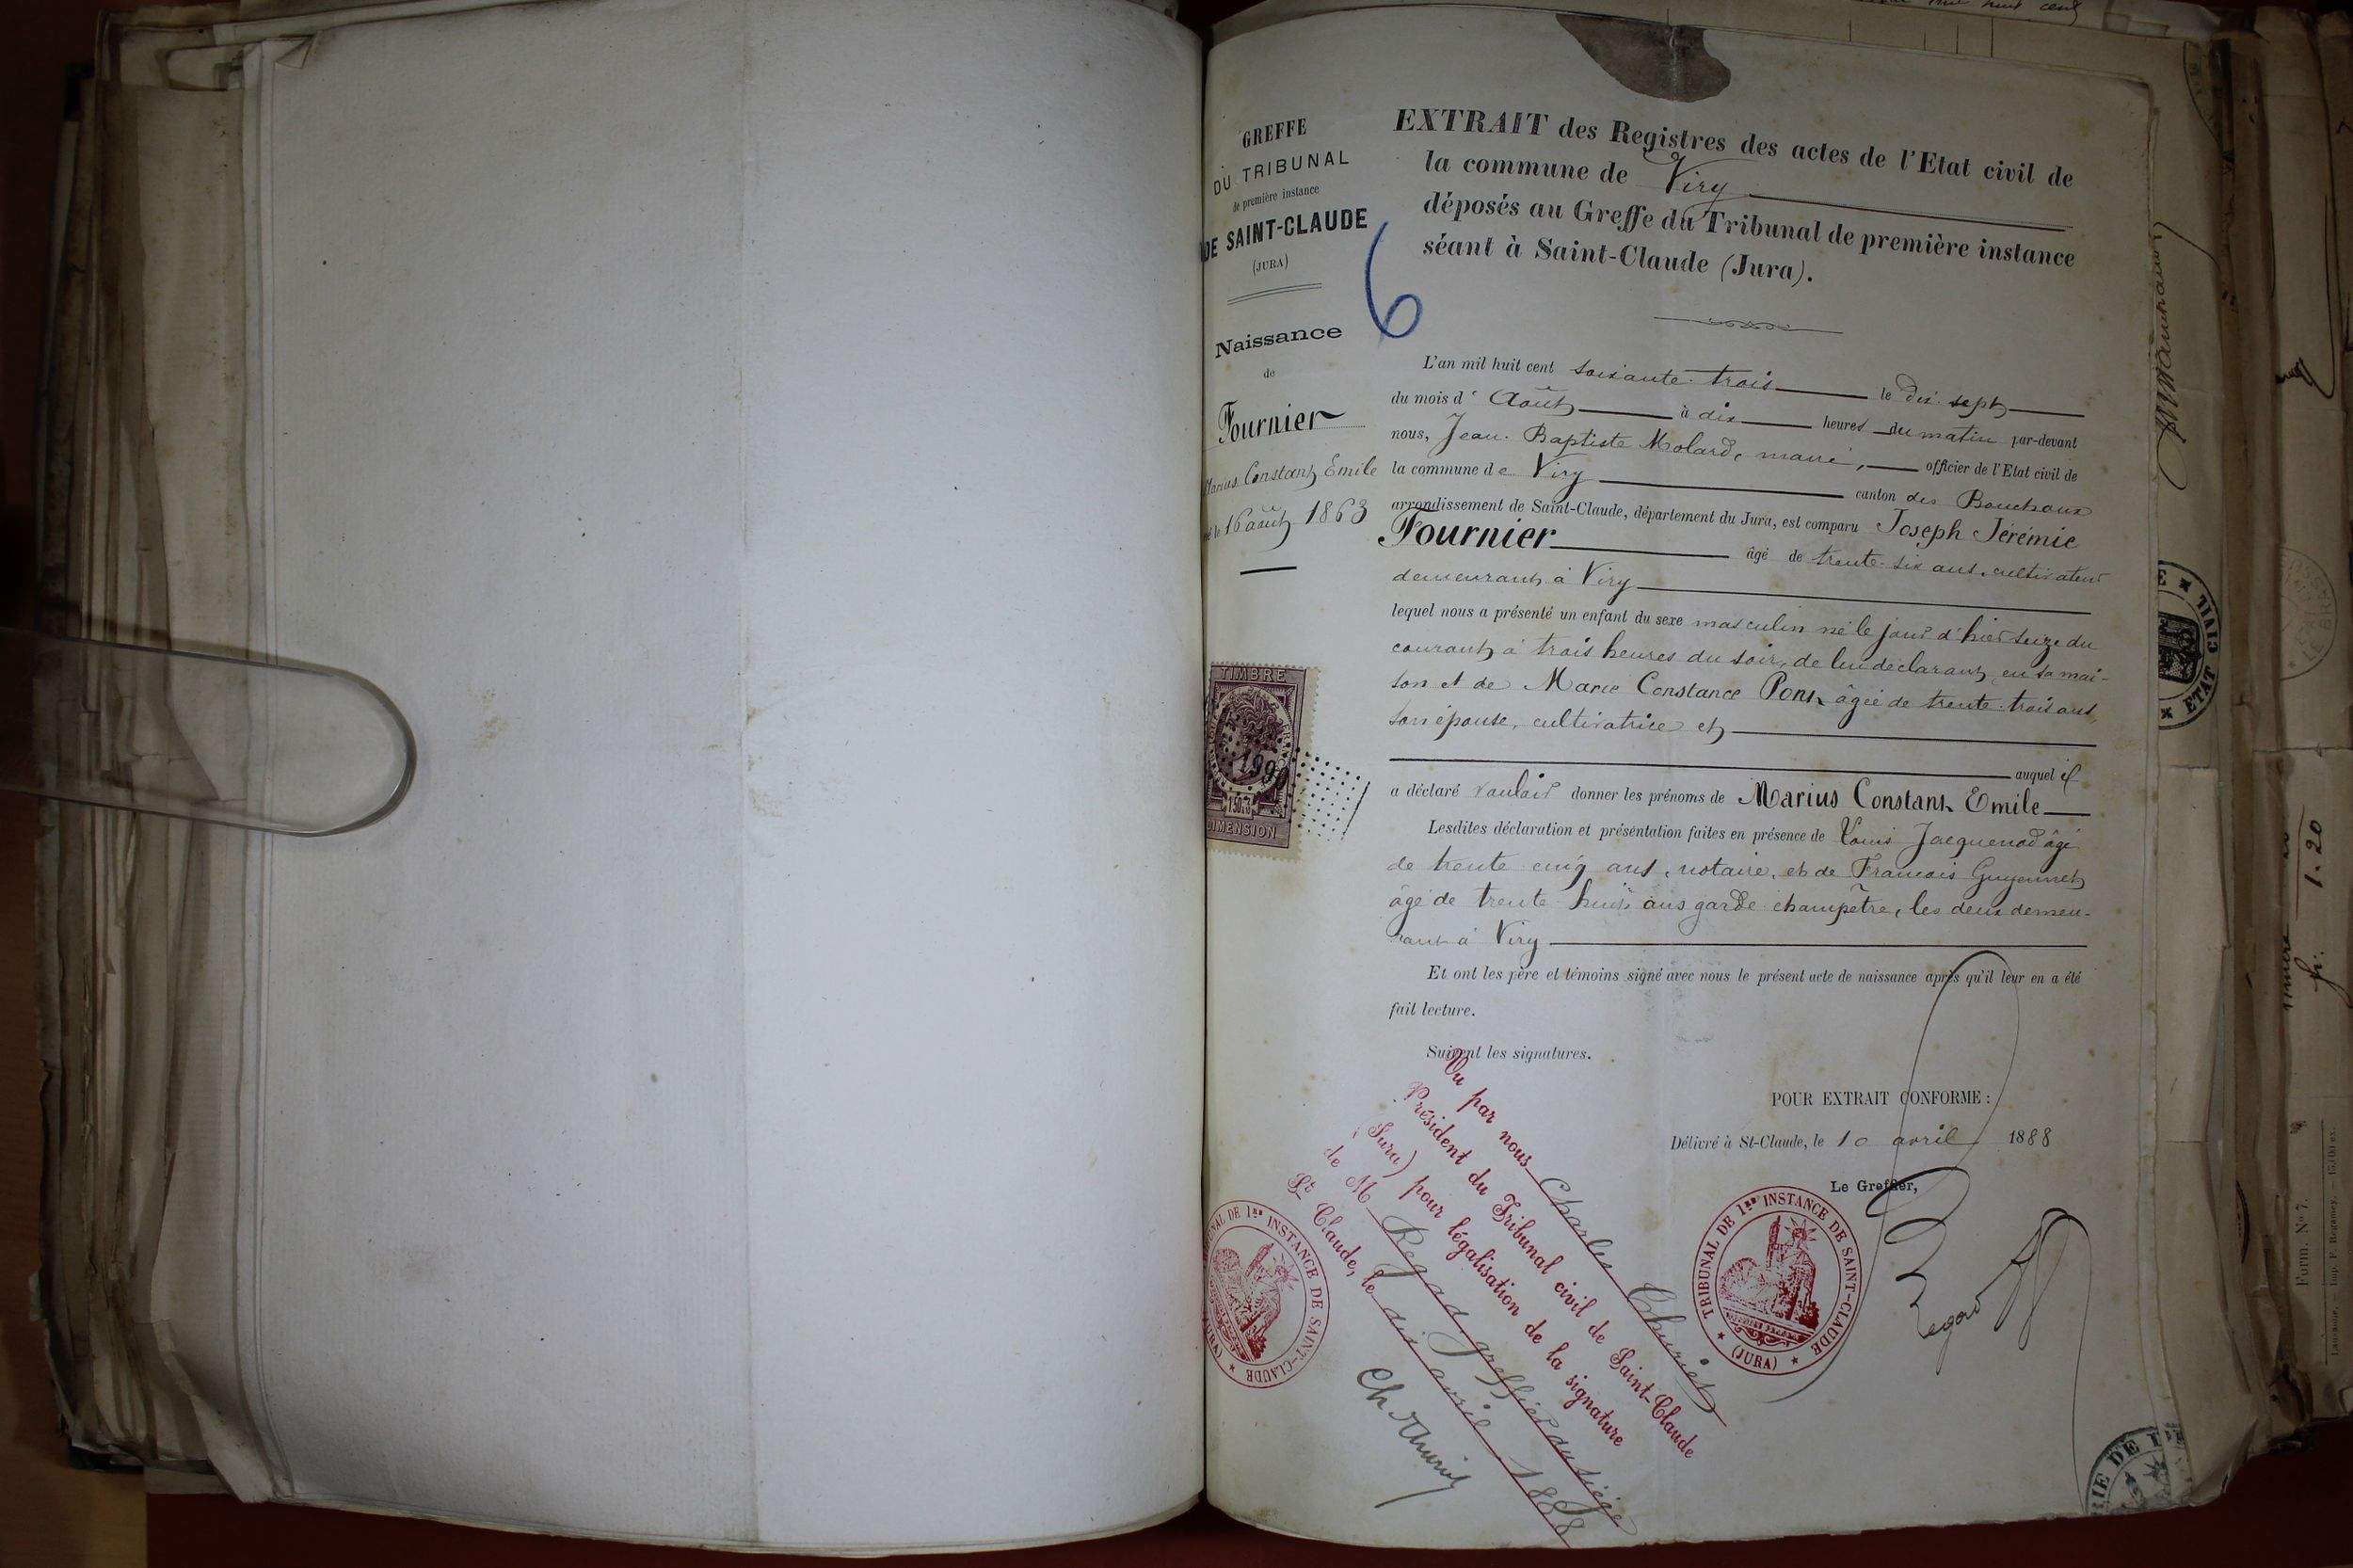 GREFFE
DU TRIBUNAL
de première instance
DE SAINT-CLAUDE
(JURA)
6
Naissance
de
Fournier
Marius Constant Emile
né le 16 août 1863
TIMBRE
1990
DIMENSION
EXTRAIT des Registres des actes de l'Etat civil de
la commune de Viry
déposés au Greffe du Tribunal de première instance
séant à Saint-Claude (Jura).
L'an mil huit cent soixante-trois le dix-sept
du mois d' Août à dix heures du matin par-devant
nous, Jean-Baptiste Molard, maire, officier de l'Etat civil de
la commune de Viry canton des Bouchoux
arrondissement de Saint-Claude, département du Jura, est comparu Joseph Jérémie
Fournier âgé de trente-six ans, cultivateur
demeurant à Viry
lequel nous a présenté un enfant du sexe masculin né le jour d'hier seize du
courant à trois heures du soir, de lui déclarant, en sa mai-
son et de Marie Constance Pont âgée de trente-trois ans,
son épouse, cultivatrice et
auquel il
a déclaré vouloir donner les prénoms de Marius Constant Emile
Lesdites déclaration et présentation faites en présence de Louis Jacquenod âgé
de trente cinq ans, notaire, et de François Guyennet
âgé de trente huit ans garde champêtre, les deux demeu-
rant à Viry
Et ont les père et témoins signé avec nous le présent acte de naissance après qu'il leur en a été
fait lecture.
Suivent les signatures.
POUR EXTRAIT CONFORME :
Délivré à St-Claude, le 10 avril 1888
Le Greffier,
Regad
TRIBUNAL DE 1re INSTANCE DE SAINT-CLAUDE
(JURA)
Vu par nous Charles Thuriet
Président du Tribunal civil de Saint-Claude
(Jura) pour légalisation de la signature
de M Regad, greffier du siège
St Claude, le dix avril 1888
Ch Thuriet
TRIBUNAL DE 1re INSTANCE DE SAINT-CLAUDE
ETAT CIVIL
1.20
fr.
Form. No 7.